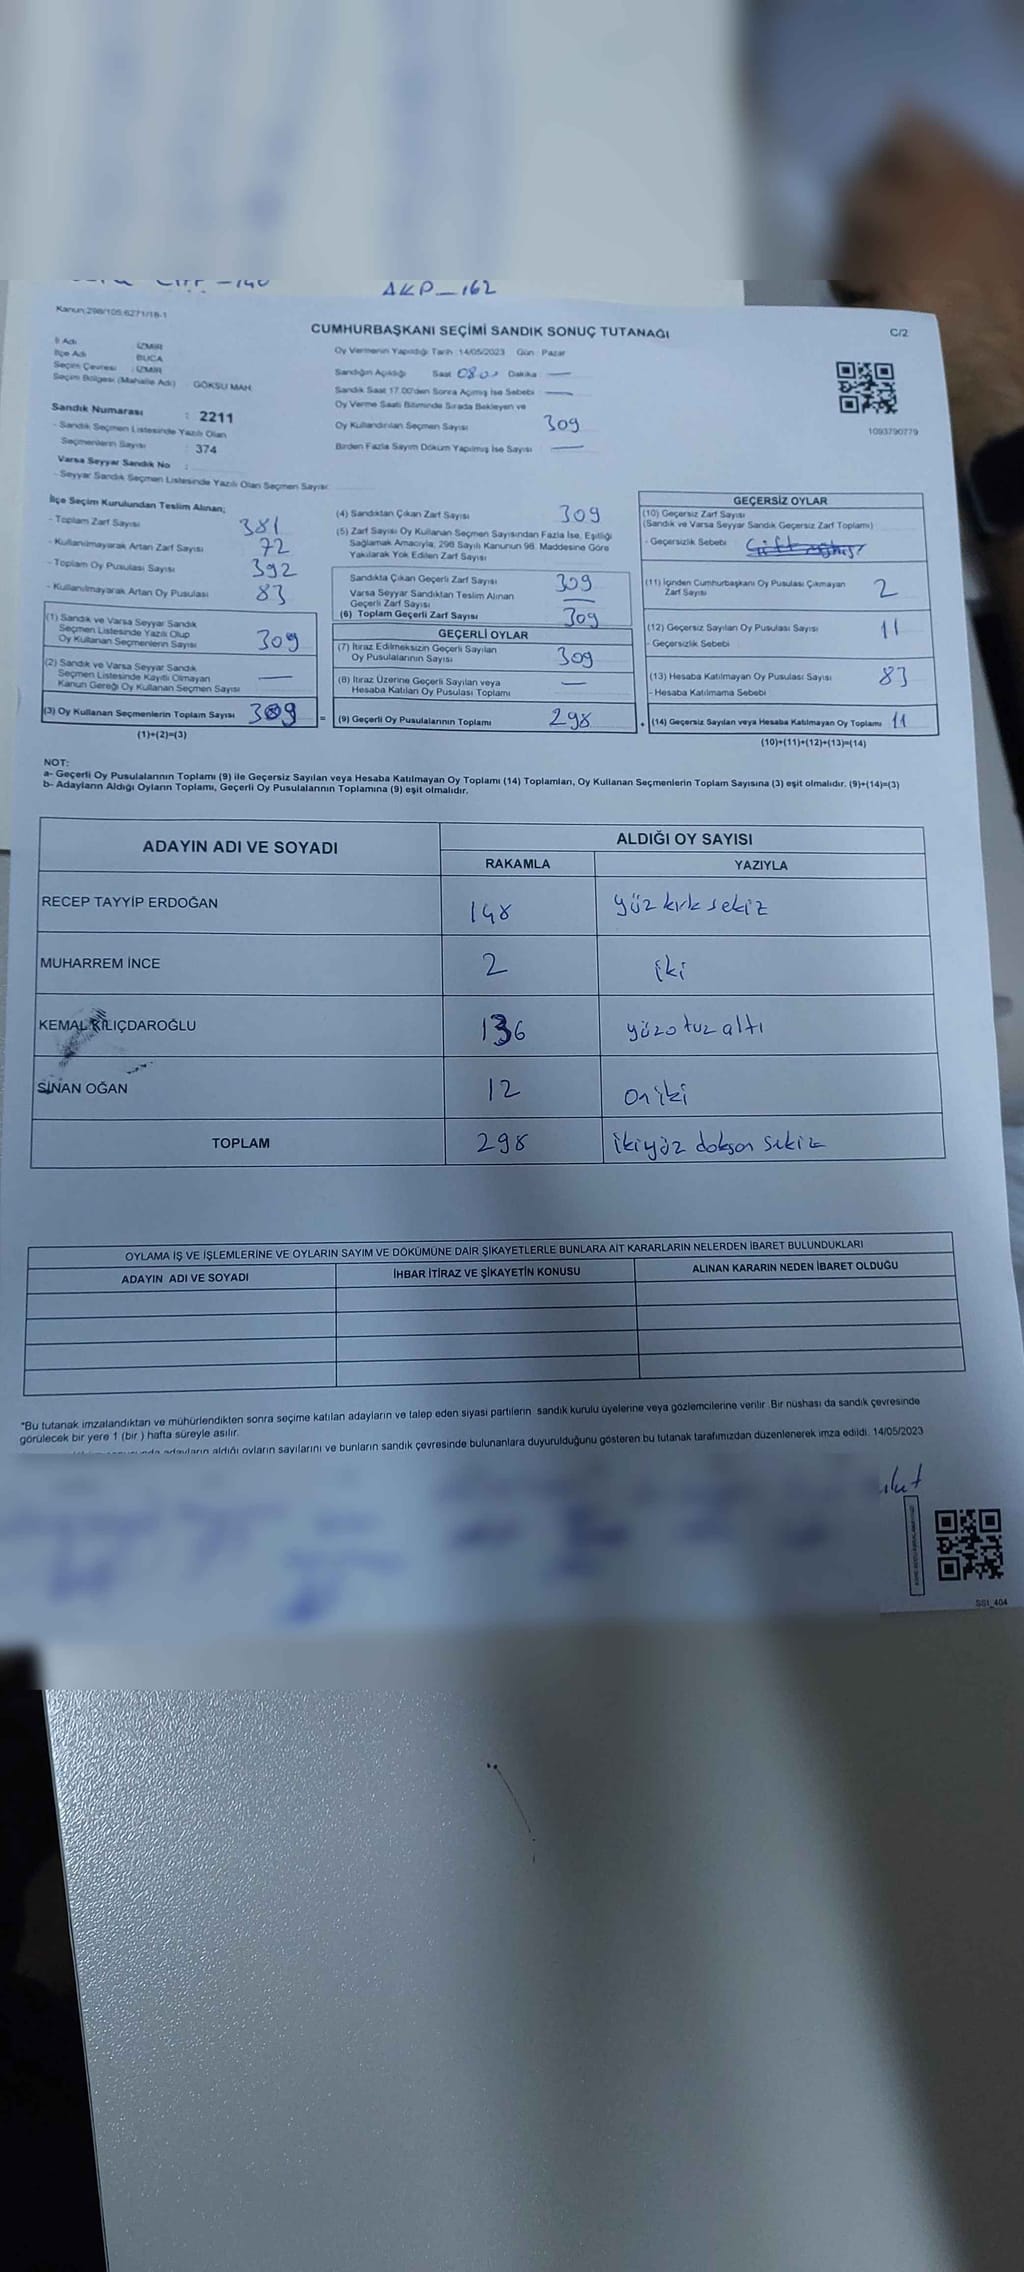 AKP_162
Kanun:298/105:6271/18-1
CUMHURBAŞKANI SEÇİMİ SANDIK SONUÇ TUTANAĞI
C/2
İl Adı : İZMİR
İlçe Adı : BUCA
Seçim Çevresi : İZMİR
Seçim Bölgesi (Mahalle Adı) : GÖKSU MAH.
Sandık Numarası : 2211
- Sandık Seçmen Listesinde Yazılı Olan
Seçmenlerin Sayısı : 374
Varsa Seyyar Sandık No :
- Seyyar Sandık Seçmen Listesinde Yazılı Olan Seçmen Sayısı:
Oy Vermenin Yapıldığı Tarih :14/05/2023 Gün : Pazar
Sandığın Açıldığı Saat 08 00 Dakika —
Sandık Saat 17.00'den Sonra Açılmış İse Sebebi —
Oy Verme Saati Bitiminde Sırada Bekleyen ve
Oy Kullandırılan Seçmen Sayısı 309
Birden Fazla Sayım Döküm Yapılmış İse Sayısı —
1093790779
İlçe Seçim Kurulundan Teslim Alınan;
- Toplam Zarf Sayısı 381
- Kullanılmayarak Artan Zarf Sayısı 72
- Toplam Oy Pusulası Sayısı 392
- Kullanılmayarak Artan Oy Pusulası 83
(1) Sandık ve Varsa Seyyar Sandık
Seçmen Listesinde Yazılı Olup
Oy Kullanan Seçmenlerin Sayısı 309
(2) Sandık ve Varsa Seyyar Sandık
Seçmen Listesinde Kayıtlı Olmayan
Kanun Gereği Oy Kullanan Seçmen Sayısı —
(3) Oy Kullanan Seçmenlerin Toplam Sayısı 309 =
(1)+(2)=(3)
(4) Sandıktan Çıkan Zarf Sayısı 309
(5) Zarf Sayısı Oy Kullanan Seçmen Sayısından Fazla İse, Eşitliği
Sağlamak Amacıyla, 298 Sayılı Kanunun 98. Maddesine Göre
Yakılarak Yok Edilen Zarf Sayısı —
Sandıkta Çıkan Geçerli Zarf Sayısı 309
Varsa Seyyar Sandıktan Teslim Alınan
Geçerli Zarf Sayısı —
(6) Toplam Geçerli Zarf Sayısı 309
GEÇERLİ OYLAR
(7) İtiraz Edilmeksizin Geçerli Sayılan
Oy Pusulalarının Sayısı 309
(8) İtiraz Üzerine Geçerli Sayılan veya
Hesaba Katılan Oy Pusulası Toplamı —
(9) Geçerli Oy Pusulalarının Toplamı 298 +
GEÇERSİZ OYLAR
(10) Geçersiz Zarf Sayısı
(Sandık ve Varsa Seyyar Sandık Geçersiz Zarf Toplamı)
- Geçersizlik Sebebi
(11) İçinden Cumhurbaşkanı Oy Pusulası Çıkmayan
Zarf Sayısı 2
(12) Geçersiz Sayılan Oy Pusulası Sayısı 11
- Geçersizlik Sebebi
(13) Hesaba Katılmayan Oy Pusulası Sayısı 83
- Hesaba Katılmama Sebebi
(14) Geçersiz Sayılan veya Hesaba Katılmayan Oy Toplamı 11
(10)+(11)+(12)+(13)=(14)
NOT:
a- Geçerli Oy Pusulalarının Toplamı (9) ile Geçersiz Sayılan veya Hesaba Katılmayan Oy Toplamı (14) Toplamları, Oy Kullanan Seçmenlerin Toplam Sayısına (3) eşit olmalıdır. (9)+(14)=(3)
b- Adayların Aldığı Oyların Toplamı, Geçerli Oy Pusulalarının Toplamına (9) eşit olmalıdır.
ADAYIN ADI VE SOYADI ALDIĞI OY SAYISI
RAKAMLA YAZIYLA
RECEP TAYYİP ERDOĞAN 148 yüz kırk sekiz
MUHARREM İNCE 2 iki
KEMAL KILIÇDAROĞLU 136 yüzotuz altı
SİNAN OĞAN 12 oniki
TOPLAM 298 ikiyüz doksan sekiz
OYLAMA İŞ VE İŞLEMLERİNE VE OYLARIN SAYIM VE DÖKÜMÜNE DAİR ŞİKAYETLERLE BUNLARA AİT KARARLARIN NELERDEN İBARET BULUNDUKLARI
ADAYIN ADI VE SOYADI İHBAR İTİRAZ VE ŞİKAYETİN KONUSU ALINAN KARARIN NEDEN İBARET OLDUĞU
*Bu tutanak imzalandıktan ve mühürlendikten sonra seçime katılan adayların ve talep eden siyasi partilerin sandık kurulu üyelerine veya gözlemcilerine verilir. Bir nüshası da sandık çevresinde
görülecek bir yere 1 (bir ) hafta süreyle asılır.
adayların aldığı oyların sayılarını ve bunların sandık çevresinde bulunanlara duyurulduğunu gösteren bu tutanak tarafımızdan düzenlenerek imza edildi. 14/05/2023
SSI_404